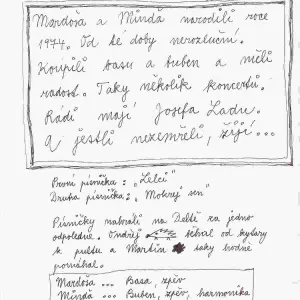 Mardoša a Minďa narodili roce
1974. Od té doby nerozluční.
Koupili basu a buben a měli
radost. Taky několik koncertů.
Rádi mají Josefa Ladu.
A jestli nezemřeli, žijí...
První písnička: „Lelci"
Druhá písnička: „Mokrej sen"
Písničky nahráli na Deltě za jedno
odpoledne. Ondřej běhal od kytary
k pultu a Martin taky hodně
pomáhal.
Mardoša ... Basa, zpěv
Minďa ... Buben, zpěv, harmonika